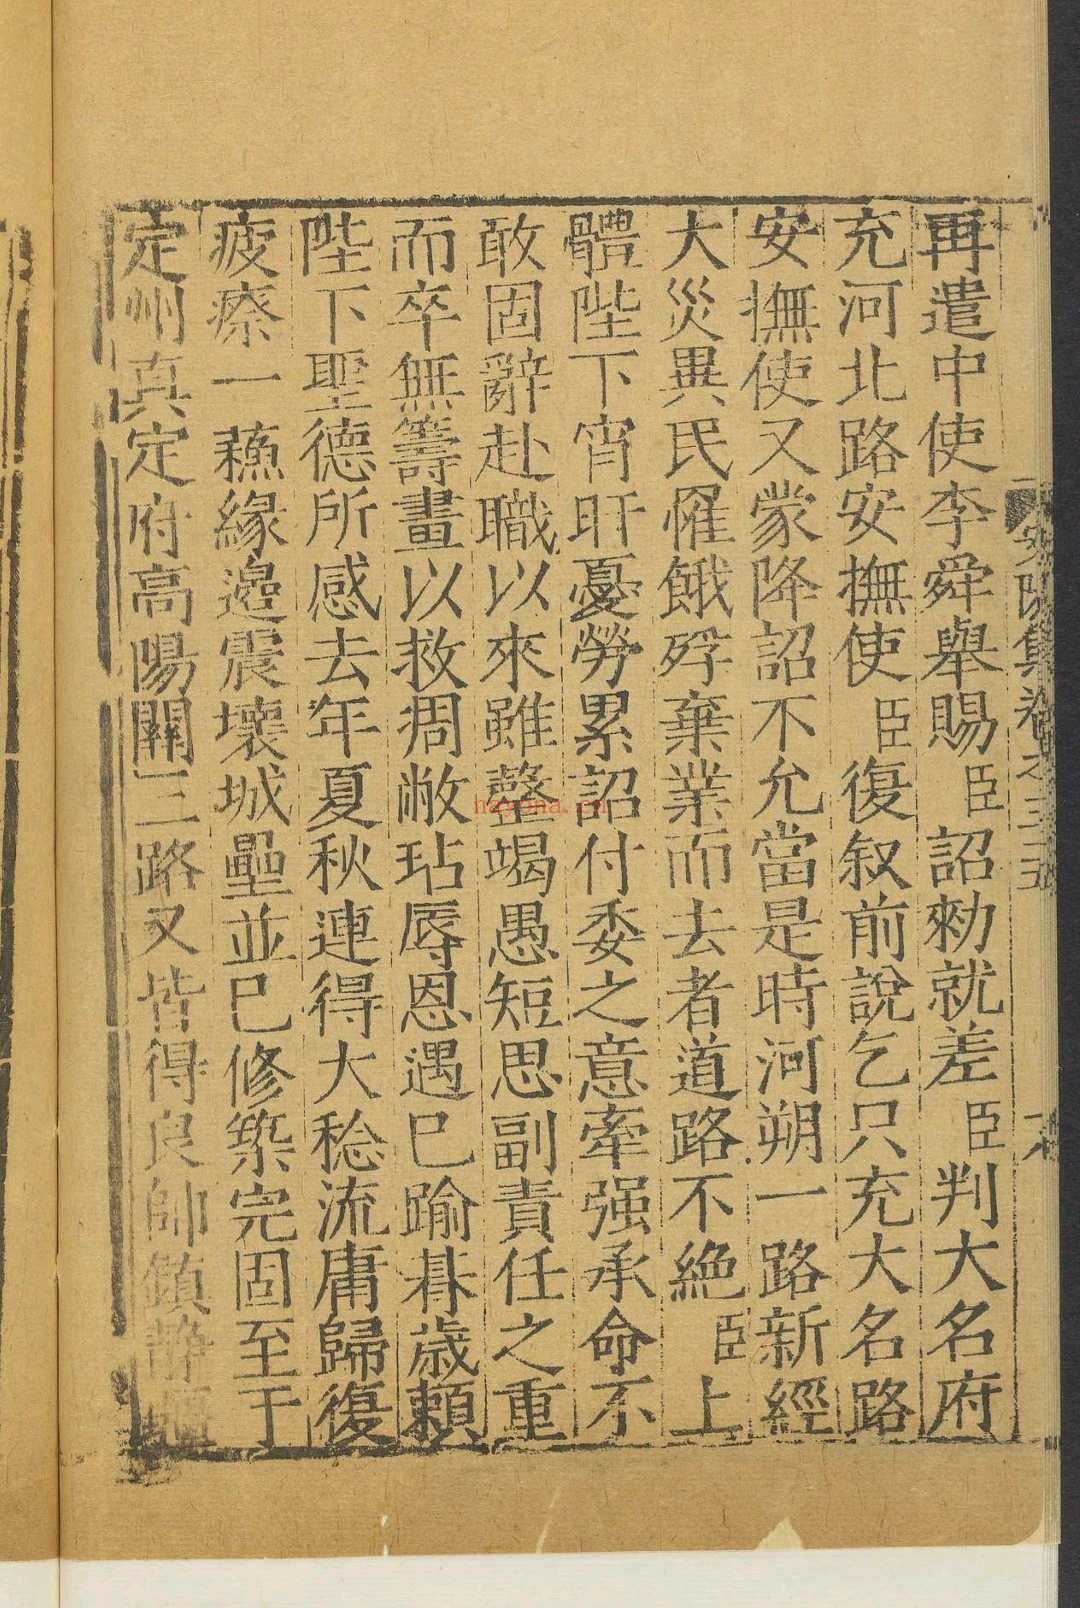 再遣中使李舜舉賜臣詔勑就差臣判大名府
充河北路安撫使臣復叙前說乞只充大名路
安撫使又蒙降詔不允當是時河朔一路新經
大災異民罹餓殍棄業而去者道路不絕臣上
體陛下宵旰憂勞累詔付委之意牽强承命不
敢固辭赴職以來雖罄竭愚短思副責任之重
而卒無籌畫以救凋敝玷辱恩遇已踰朞歲賴
陛下聖德所感去年夏秋連得大稔流庸歸復
疲瘵一蘓緣邉震壞城壘並已修築完固至于
定州真定府高陽關三路又皆得良帥鎮靜
安陽集卷之三十五
hayona.cn